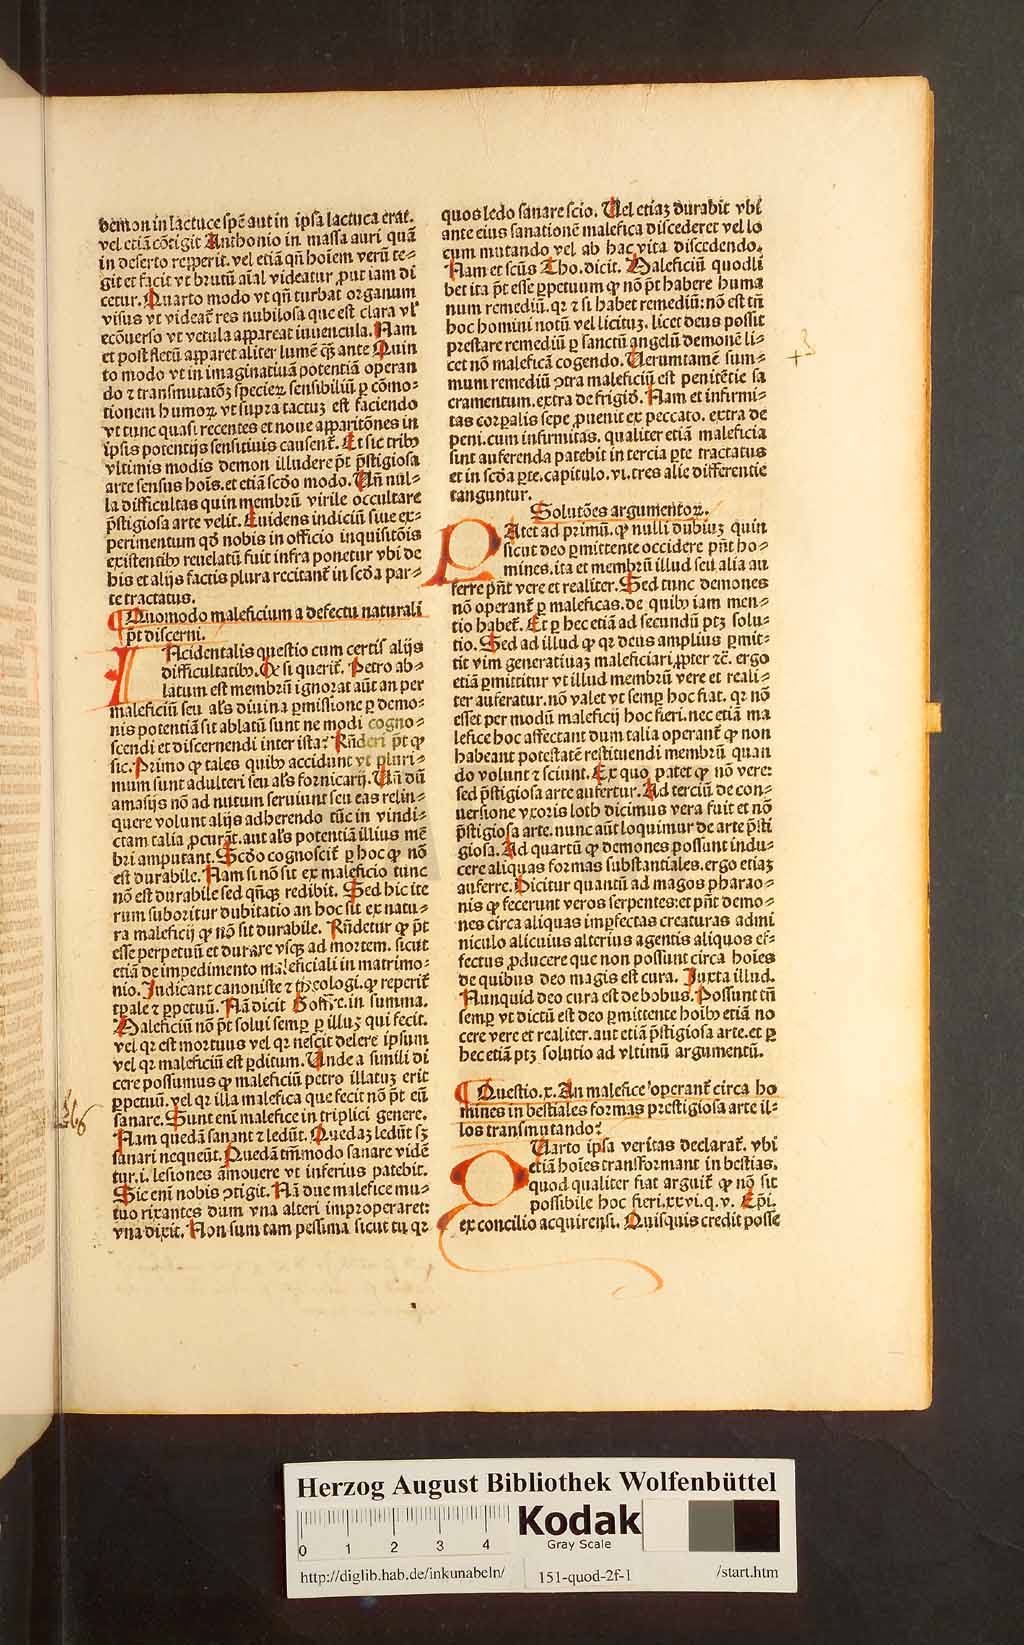 demon in lactuce spē aut in ipsa lactuca erat̄.
vel etiā cōtigit Anthonio in massa auri quā
in deserto repperit. vel etiā qñ hoiem verū te-
git et facit vt brutū aīal videatur ꝓut iam di
cetur. Quarto modo vt qñ turbat organum
visus vt videat̄ res nubilosa que est clara vl'
ecōuerso vt vetula appareat iuuencula. Nam
et post fletū apparet aliter lumē qȝ ante Quin
to modo vt in imaginatiuā potentiā operan
do ⁊ transmutatōꝫ specieꝝ sensibiliū ꝑ cōmo-
tionem humoꝝ vt supra tactuꝫ est faciendo
vt tunc quasi recentes et noue apparitōnes in
ip̄sis potentijs sensitiuis causent̄. Et sic tribꝰ
vltimis modis demon illudere pōt p̄stigiosa
arte sensus hoīs. et etiā scd̄o modo. Uñ nul-
la difficultas quin membrū virile occultare
p̄stigiosa arte velit. Euidens indiciū siue ex-
perimentum qd̄ nobis in officio inquisitōis
existentibꝰ reuelatū fuit infra ponetur vbi de
his et alijs factis plura recitant̄ in scd̄a par-
te tractatus.
¶ Quomodo maleficium a defectu naturali
pōt discerni.
INcidentalis questio cum certis alijs
difficultatibꝰ. Qꝫ si querit̄. Petro ab-
latum est membrū ignorat aūt an per
maleficiū seu al's diuina ꝑmissione ꝑ demo-
nis potentiā sit ablatū sunt ne modi cogno-
scendi et discernendi inter ista? Rñderi pōt ꝙ
sic. Primo ꝙ tales quibꝰ accidunt vt pluri-
mum sunt adulteri seu al's fornicarij. Uñ dū
amasijs nō ad nutum seruiunt seu eas relin-
quere volunt alijs adherendo tūc in vindi-
ctam talia ꝓcurāt. aut al's potentiā illius mē
bri amputant. Scd̄o cognoscit̄ ꝑ hoc ꝙ nō
est durabile. Nam si nō sit ex maleficio tunc
nō est durabile sed qñqꝫ redibit. Sed hic ite
rum suboritur dubitatio an hoc sit ex natu-
ra maleficij ꝙ nō sit durabile. Rñdetur ꝙ pōt
esse perpetuū et durare vsqꝫ ad mortem. sicut
etiā de impedimento maleficiali in matrimo-
nio. Judicant canoniste ⁊ theologi. ꝙ reperit̄
tp̄ale ⁊ ꝑpetuū. Nā dicit Goffre. in summa.
Maleficiū nō pōt solui semꝑ ꝑ illuꝫ qui fecit.
vel qꝛ est mortuus vel qꝛ nescit delere ipsum
vel qꝛ maleficiū est ꝑditum. Unde a simili di
cere possumus ꝙ maleficiū petro illatuꝫ erit
ꝑpetuū. vel qꝛ illa malefica que fecit nō pōt eū
sanare. Sunt enī malefice in triplici genere.
Nam quedā sanant ⁊ ledūt. Quedaꝫ ledūt sꝫ
sanari nequeūt. Quedā tm̄modo sanare vidē
tur. i. lesiones āmouere vt inferius patebit.
Sic enī nobis ꝯtigit. Nā due malefice mu-
tuo rixantes dum vna alteri improperaret:
vna dixit. Non sum tam pessima sicut tu qꝛ
quos ledo sanare scio. Uel etiaꝫ durabit vbi
ante eius sanationē malefica discederet vel lo
cum mutando vel ab hac vita discedendo.
Nam et scūs Tho. dicit. Maleficiū quodli
bet ita pōt esse ꝑpetuum ꝙ nō pōt habere huma
num remediū. qꝛ ⁊ si habet remediū: nō est tn̄
hoc homini notū vel licituꝫ. licet deus possit
prestare remediū ꝑ sanctū angelū demonē li-
cet nō maleficā cogendo. Uerumtamē sum-
mum remediū ꝯtra maleficiū est penitētie sa
cramentum. extra de frigiđ. Nam et infirmi-
tas corꝑalis sepe ꝓuenit ex peccato. extra de
peni. cum infirmitas. qualiter etiā maleficia
sint auferenda patebit in tercia ꝑte tractatus
et in scd̄a ꝑte. capitulo. vi. tres alie differentie
tanguntur.
Solutōes argumentoꝝ.
PAtet ad primū. ꝙ nulli dubiuꝫ quin
sicut deo ꝑmittente occidere pn̄t ho-
mines. ita et membrū illud seu alia au
ferre pn̄t vere et realiter. Sed tunc demones
nō operant̄ ꝑ maleficas. de quibꝰ iam men-
tio habet̄. Et ꝑ hec etiā ad secundū ptꝫ solu-
tio. Sed ad illud ꝙ qꝛ deus amplius ꝑmit-
tit vim generatiuaꝫ maleficiari ꝓpter ⁊c̄. ergo
etiā ꝑmittitur vt illud membrū vere et reali-
ter auferatur. nō valet vt semꝑ hoc fiat. qꝛ nō
esset per modū maleficij hoc fieri. nec etiā ma
lefice hoc affectant dum talia operant̄ ꝙ non
habeant potestatē restituendi membrū quan
do volunt ⁊ sciunt. Ex quo patet ꝙ nō vere:
sed p̄stigiosa arte aufertur. Ad terciū de con-
uersione vxoris loth dicimus vera fuit et nō
p̄stigiosa arte. nunc aūt loquimur de arte p̄sti
giosa. Ad quartū ꝙ demones possunt indu-
cere aliquas formas substantiales. ergo etiaꝫ
auferre. Dicitur quantū ad magos pharao-
nis ꝙ fecerunt veros serpentes: et pn̄t demo-
nes circa aliquas imꝑfectas creaturas admi
niculo alicuius alterius agentis aliquos ef-
fectus ꝓducere que non possunt circa hoīes
de quibus deo magis est cura. Juxta illud.
Nunquid deo cura est de bobus. Possunt tn̄
semꝑ vt dictū est deo ꝑmittente hoībꝰ etiā no
cere vere et realiter. aut etiā p̄stigiosa arte. et ꝑ
hec etiā ptꝫ solutio ad vltimū argumentū.
¶ Questio. x. An malefice operant̄ circa ho
mines in bestiales formas prestigiosa arte il-
los transmutando?
QUarto ipsa veritas declarat̄. vbi
etiā hoīes transformant in bestias.
quod qualiter fiat arguit̄ ꝙ nō sit
possibile hoc fieri. xxvi. q. v. Ep̄i.
ex concilio acquirensi. Quisquis credit posse
+3
Herzog August Bibliothek Wolfenbüttel
0 1 2 3 4
Kodak
Gray Scale
http://diglib.hab.de/inkunabeln/ 151-quod-2f-1 /start.htm